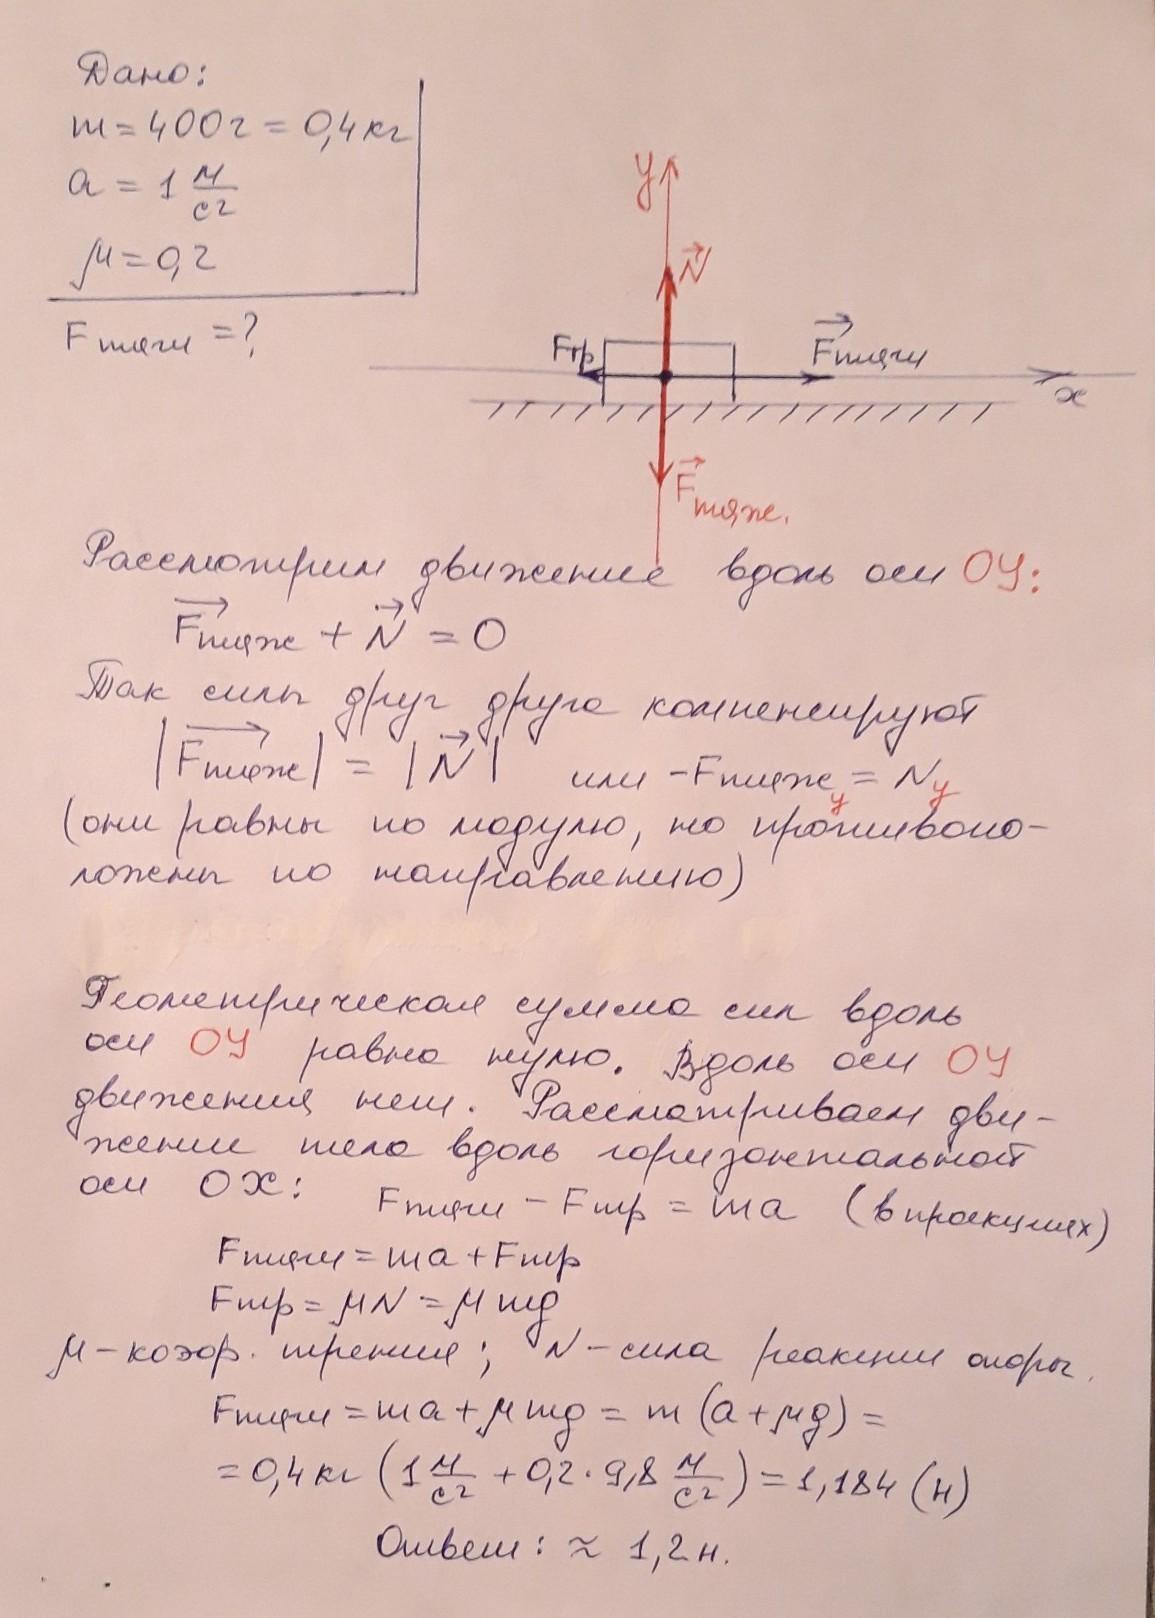 Дано:
m = 400г = 0,4 кг
a = 1 м/с²
μ = 0,2
Fтяги = ?
y
N
Fтр
Fтяги
x
Fтяж.
Рассмотрим движение вдоль оси OY:
Fтяж + N = 0
Так силы друг друга компенсируют
|Fтяж| = |N| или -Fтяж y = Ny
(они равны по модулю, но противопо-
ложены по направлению)
Геометрическая сумма сил вдоль
оси OY равна нулю. Вдоль оси OY
движения нет. Рассматриваем дви-
жение тела вдоль горизонтальной
оси OX: Fтяги - Fтр = ma (в проекциях)
Fтяги = ma + Fтр
Fтр = μN = μmg
μ - коэф. трения; N - сила реакции опоры.
Fтяги = ma + μmg = m (a + μg) =
= 0,4 кг (1 м/с² + 0,2 · 9,8 м/с²) = 1,184 (Н)
Ответ: ≈ 1,2 Н.